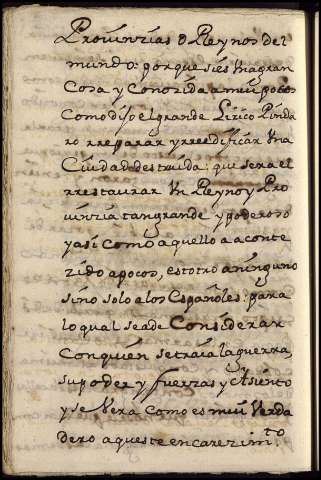 Prouinzias o Reynos del
mundo: porque si es Vna gran
Cosa y Conozida a mui pocos
Como dijo el grande Lirico Pinda
ro rreparar y rreedificar Vna
Ciudad destruida: que sera el
rrestaurar Vn Reyno y Pro
uinzia tan grande y poderoso
y asi como aquello a aconte
zido a pocos, estotro a ninguno
sino solo a los Españoles: para
lo qual se a de Considerar
Con quien se traia la guerra,
su poder y fuerzas y Asiento
y se Vera como es mui Verda
dero aqueste encarezimto